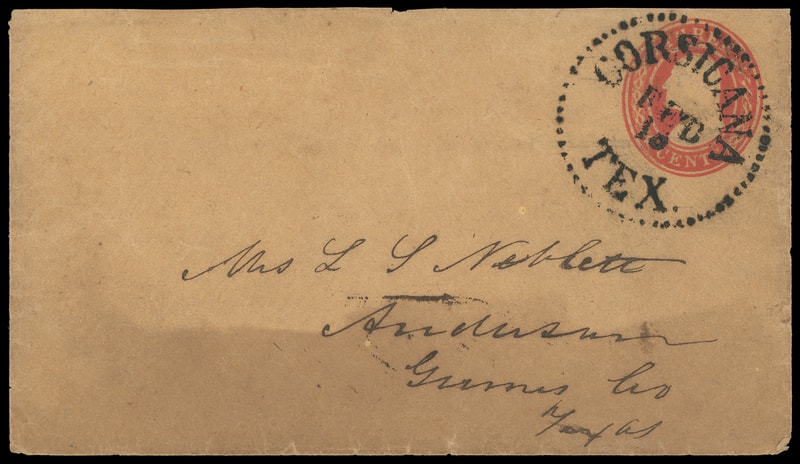 CORSICANA
FEB
18
TEX.
CENTS
Mrs L S Neblett
Anderson
Grimes Co
Texas